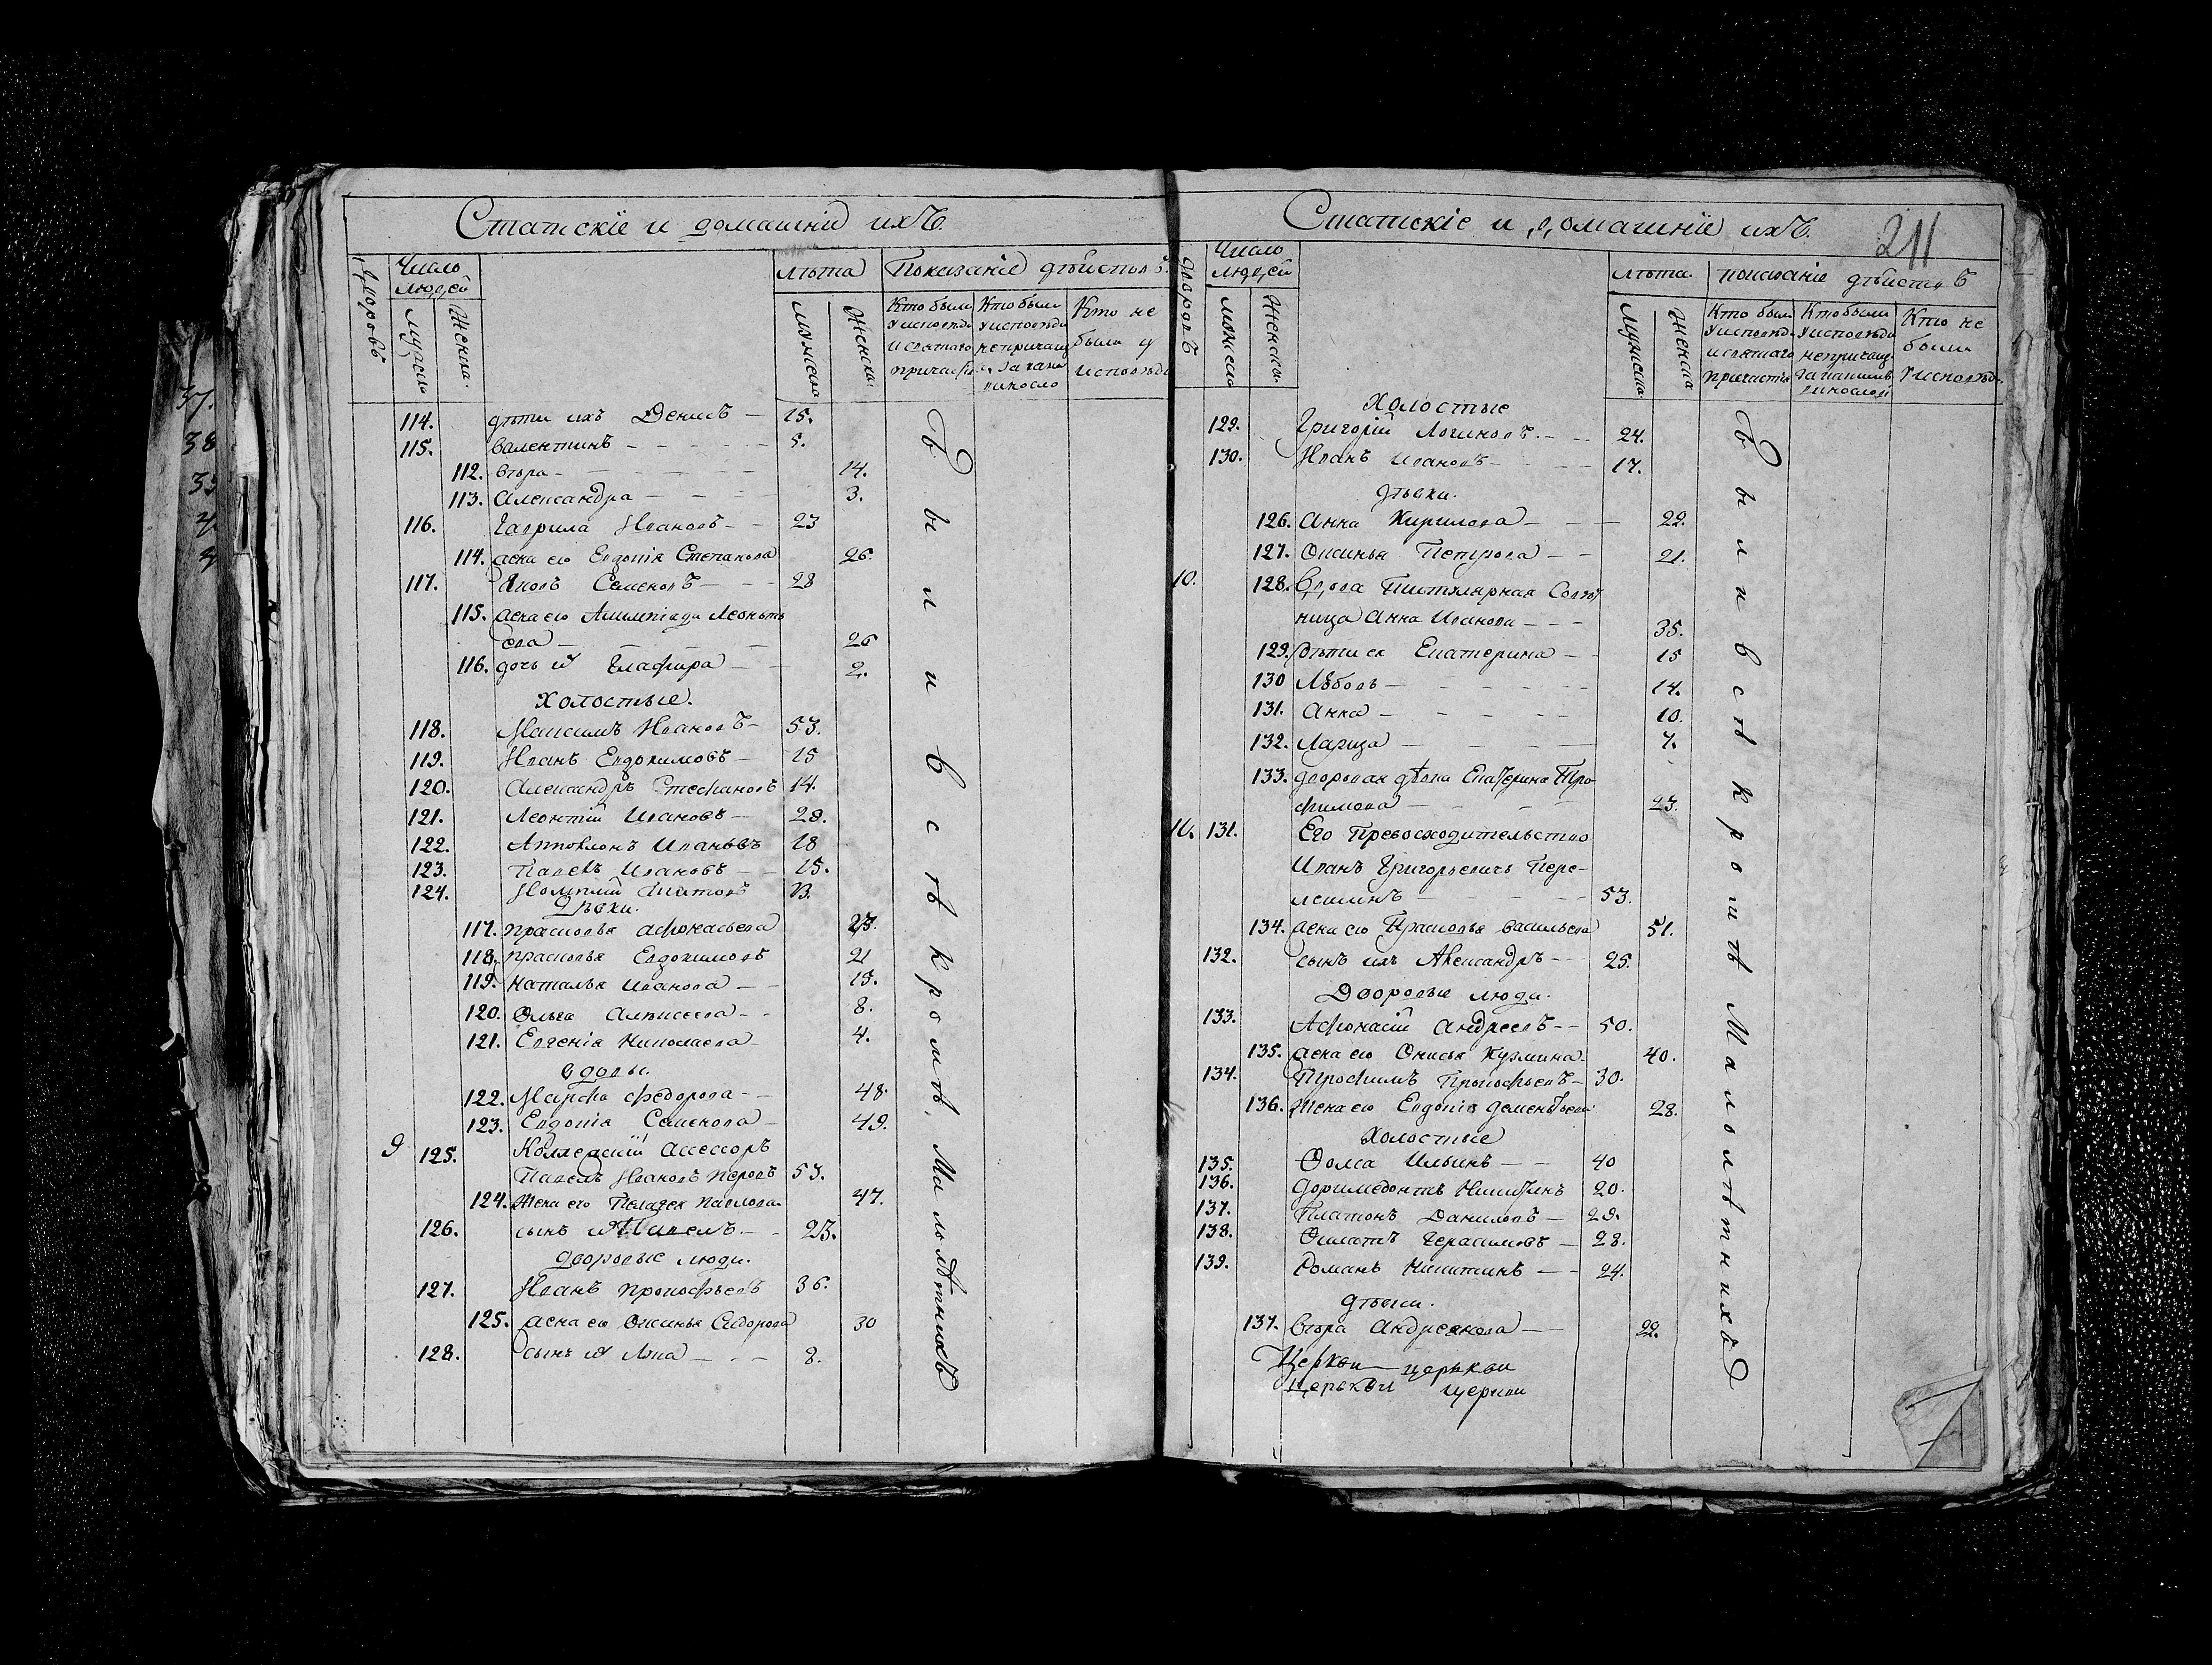 Статскіе и домашніи ихъ.
Дворовъ
Число людей
Мужеска
Женска.
лѣта
мужеска
женска.
Показаніе дѣйствъ.
Кто были у исповѣди и святаго причастія
Кто были у исповѣди не причащ.
Кто не были у исповѣди
114. дѣти ихъ Денисъ — 15.
115. Валентинъ — — — —
112. Вѣра — — — 14.
113. Александра — — — 3.
116. Гаврила Ивановъ — — 23
114. жена его Евдокія Степанова 26.
117. Яковъ Семеновъ — — 28
115. жена его Леонтье
ева — — — 26
116. дочь их Глафира — — 2.
Холостые.
118. Максимъ Ивановъ — 53.
119. Иванъ Евдокимовъ — 15
120. Александръ Стефановъ 14.
121. Леонтій Ивановъ — 28.
122. Апполонъ Ивановъ 18
123. Павелъ Ивановъ — — 15.
124. Титовъ 13.
Дѣвки.
117. Прасковья Афонасьева 23.
118. Прасковья Евдокимовъ 21
119. Наталья Иванова — — 15.
120. Ольга Алексѣева — — 8.
121. Евгенія Николаева — 4.
вдовы.
122. Марфа Федорова — — 48.
123. Евдокія Семенова — 49.
9 125. Коллежскій Ассессоръ
Павелъ Ивановъ Перовъ 53.
124. Жена его Пелагея Павлова. 47.
126. сынъ их — — 23.
дворовые люди.
127. Иванъ Прокофьевъ 36.
125. жена его Оксинья Сидорова 30
128. сынъ их Лука — — — 8.
Были всѣ кромѣ. Малолѣтнихъ
Статскіе и домашніе ихъ.
211
Дворовъ
Число людей
мужеска
Женска.
лѣта.
Мужеска
Женска
показаніе дѣйствъ
Кто были у исповѣди и святаго причастія
Кто были у исповѣди не причащ.
Кто не были у исповѣди.
Холостые
129. Григорій Логиновъ. — — 24.
130. Иванъ Ивановъ — — — 17.
дѣвки.
126. Анна Кирилова — — — 22.
127. Оксинья Петрова — — 21.
10. 128. Вдова Титулярная Совѣт
ница Анна Иванова — — — 35.
129. Дѣти ея Екатерина — — 15
130 Любовь — — — — — 14.
131. Анна — — — — — 10.
132. Лариса — — — — 7.
133. дворовая дѣвка Екатерина Тро
фимова — — — — 23.
11. 131. Его Превосходительство
Иванъ Григорьевичъ Пере-
лешинъ — — — — 53.
134. жена его Прасковья Васильева 51.
132. сынъ ихъ Александръ — — 25.
Дворовые люди.
133. Афонасій Андреевъ — — 50.
135. жена его Онисья Кузмина. 40.
134. Трофимъ Прокофьевъ — 30.
136. Жена его Евдокія Дементьева 28.
Холостые
135. Фома Ильинъ — — 40
136. Доримедонтъ Никитинъ 20.
137. Платонъ Даниловъ — 29.
138. Филатъ Герасимовъ — 28.
139. Романъ Никитинъ — — 24.
дѣвки.
137. Вѣра Андреянова — 22.
Церкви церькви
Церькви церкви
Были всѣ кромѣ Малолѣтнихъ
37.
38